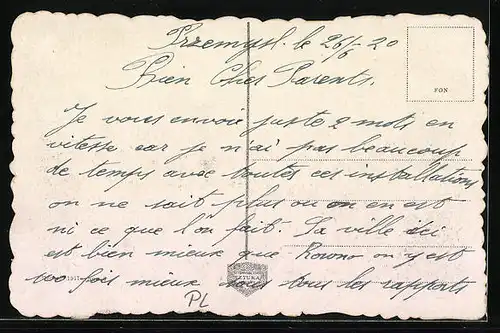 Przemysl. le 26/6 20
Bien Chers Parents.
FON
Je vous envoie juste 2 mots en
vitesse car je n'ai pas beaucoup
de temps avec toutes ces installations
on ne sait plus ou on en est
ni ce que l'on fait. La ville ici
est bien mieux que Rowno on y est
100 fois mieux sous tous les rapports
PL